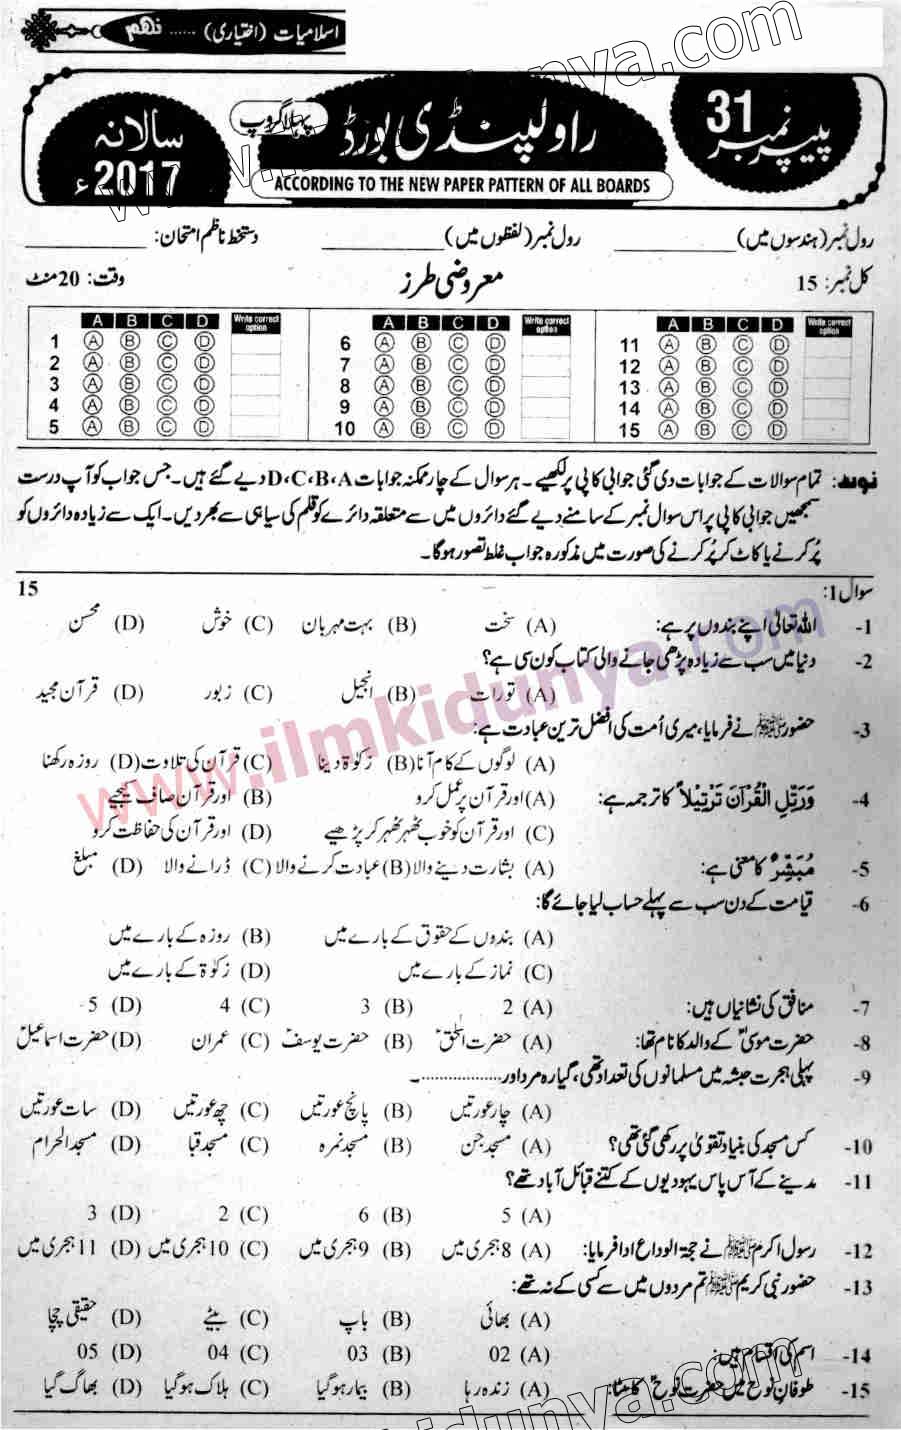 اسلامیات (اختیاری) ...... نہم
پیپر نمبر 31
راولپنڈی بورڈ
پہلا گروپ
سالانہ 2017ء
ACCORDING TO THE NEW PAPER PATTERN OF ALL BOARDS
رول نمبر (ہندسوں میں) ____________ رول نمبر (لفظوں میں) ____________ دستخط ناظم امتحان: ____________
کل نمبر: 15 معروضی طرز وقت: 20 منٹ
A B C D Write correct option A B C D Write correct option A B C D Write correct option
1 A B C D 6 A B C D 11 A B C D
2 A B C D 7 A B C D 12 A B C D
3 A B C D 8 A B C D 13 A B C D
4 A B C D 9 A B C D 14 A B C D
5 A B C D 10 A B C D 15 A B C D
نوٹ: تمام سوالات کے جوابات دی گئی جوابی کاپی پر لکھیے۔ ہر سوال کے چار ممکنہ جوابات D،C،B،A دیے گئے ہیں۔ جس جواب کو آپ درست
سمجھیں جوابی کاپی پر اس سوال نمبر کے سامنے دیے گئے دائروں میں سے متعلقہ دائرے کو قلم کی سیاہی سے بھر دیں۔ ایک سے زیادہ دائروں کو
پُر کرنے یا کاٹ کر پُر کرنے کی صورت میں مذکورہ جواب غلط تصور ہوگا۔
سوال 1: 15
1- اللہ تعالیٰ اپنے بندوں پر ہے: (A) سخت (B) بہت مہربان (C) خوش (D) محسن
2- دنیا میں سب سے زیادہ پڑھی جانے والی کتاب کون سی ہے؟
(A) تورات (B) انجیل (C) زبور (D) قرآن مجید
3- حضورﷺ نے فرمایا، میری اُمت کی افضل ترین عبادت ہے:
(A) لوگوں کے کام آنا (B) زکوٰۃ دینا (C) قرآن کی تلاوت (D) روزہ رکھنا
4- وَرَتِّلِ الْقُرْآنَ تَرْتِيْلاً کا ترجمہ ہے: (A) اور قرآن پر عمل کرو (B) اور قرآن صاف کیجیے
(C) اور قرآن کو خوب ٹھہر ٹھہر کر پڑھیے (D) اور قرآن کی حفاظت کرو
5- مُبَشِّرٌ کا معنی ہے: (A) بشارت دینے والا (B) عبادت کرنے والا (C) ڈرانے والا (D) مبلغ
6- قیامت کے دن سب سے پہلے حساب لیا جائے گا:
(A) بندوں کے حقوق کے بارے میں (B) روزہ کے بارے میں
(C) نماز کے بارے میں (D) زکوٰۃ کے بارے میں
7- منافق کی نشانیاں ہیں: (A) 2 (B) 3 (C) 4 (D) 5
8- حضرت موسیٰؑ کے والد کا نام تھا: (A) حضرت اسحٰقؑ (B) حضرت یوسفؑ (C) عمران (D) حضرت اسماعیلؑ
9- پہلی ہجرت حبشہ میں مسلمانوں کی تعداد تھی، گیارہ مرد اور ..................۔
(A) چار عورتیں (B) پانچ عورتیں (C) چھ عورتیں (D) سات عورتیں
10- کس مسجد کی بنیاد تقویٰ پر رکھی گئی تھی؟ (A) مسجد جن (B) مسجد نمرہ (C) مسجد قبا (D) مسجد الحرام
11- مدینے کے آس پاس یہودیوں کے کتنے قبائل آباد تھے؟
(A) 5 (B) 6 (C) 2 (D) 3
12- رسول اکرمﷺ نے حجۃ الوداع ادا فرمایا: (A) 8 ہجری میں (B) 9 ہجری میں (C) 10 ہجری میں (D) 11 ہجری میں
13- حضور نبی کریمﷺ تم مردوں میں سے کسی کے نہ تھے:
(A) بھائی (B) باپ (C) بیٹے (D) حقیقی چچا
14- اسم کی اقسام ہیں: (A) 02 (B) 03 (C) 04 (D) 05
15- طوفان نوح میں حضرت نوحؑ کا بیٹا: (A) زندہ رہا (B) بیمار ہو گیا (C) ہلاک ہو گیا (D) بھاگ گیا
www.ilmkidunya.com